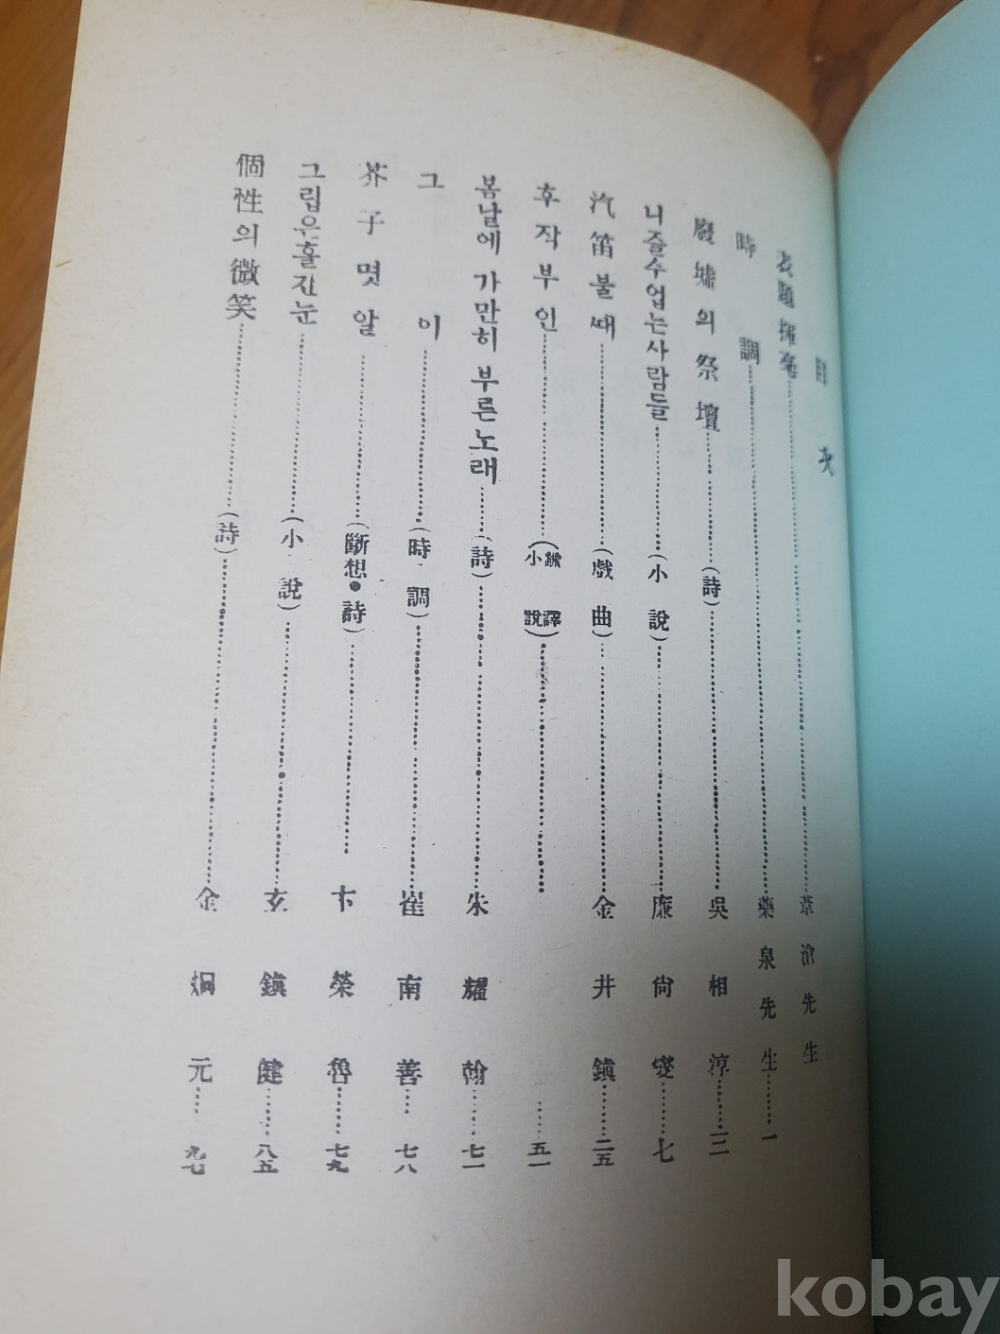 目次
表題揮毫 葦滄先生
時調 藥泉先生 一
廢墟의祭壇 (詩) 吳相淳 三
니즐수업는사람들 (小說) 廉尙燮 七
汽笛불때 (戲曲) 金井鎭 二五
후작부인 (飜譯小說) 五一
봄날에 가만히 부른노래 (詩) 朱耀翰 七一
그이 (時調) 崔南善 七八
芥子몃알 (斷想•詩) 卞榮魯 七九
그립은흘긴눈 (小說) 玄鎭健 八五
個性의微笑 (詩) 金烱元 九七
kobay